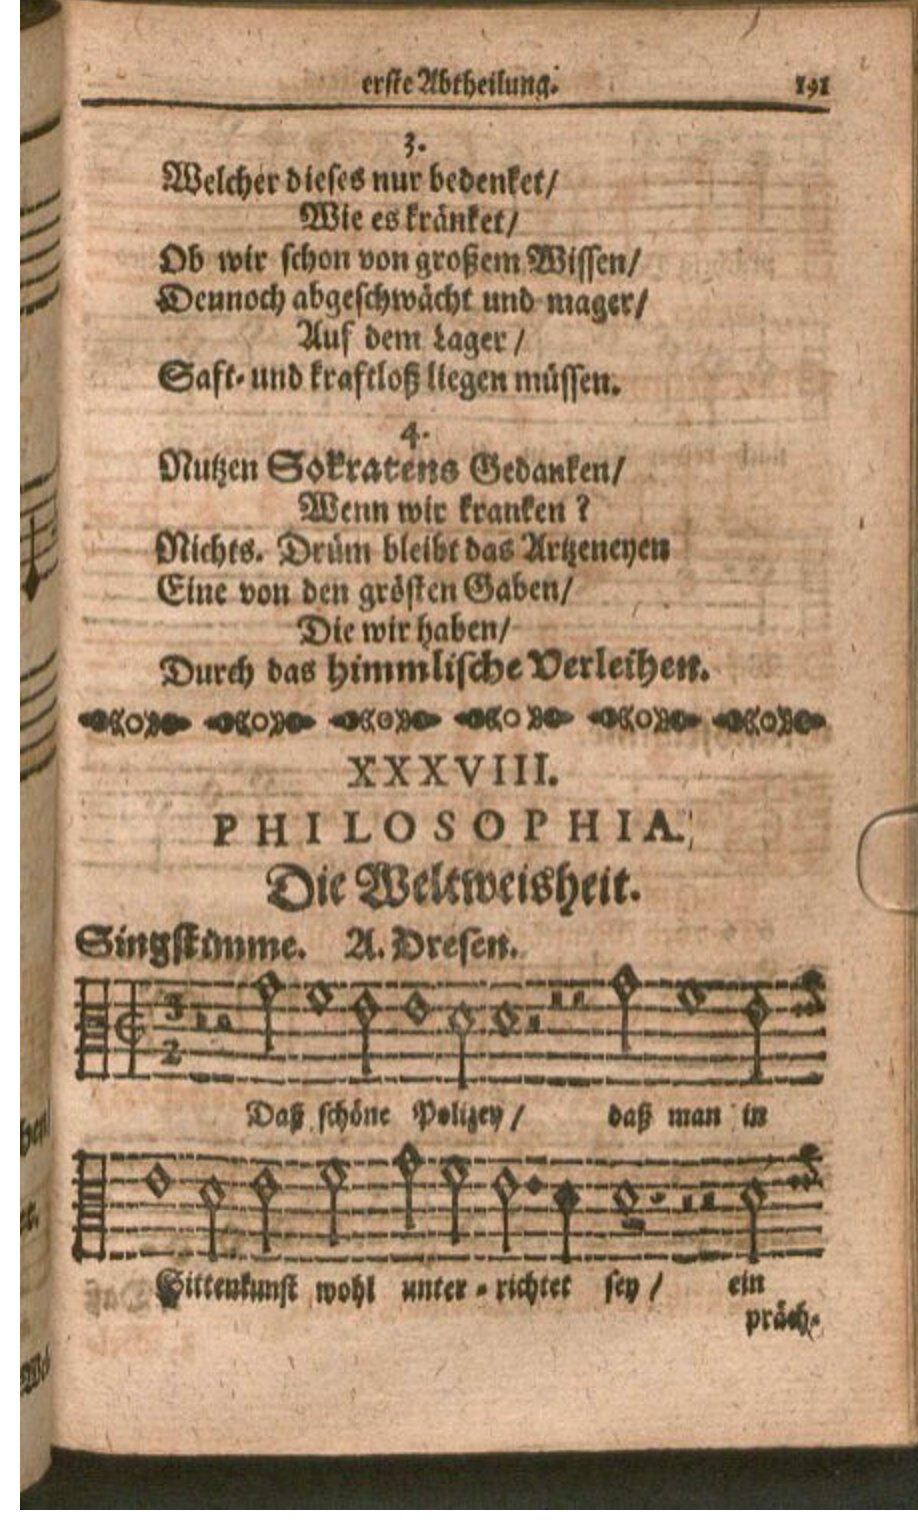 erste Abtheilung. 191
3.
Welcher dieses nur bedenket/
Wie es kränket/
Ob wir schon von großem Wissen/
Dennoch abgeschwächt und mager/
Auf dem Lager/
Saft- und kraftloß liegen müssen.
4.
Nutzen Sokratens Gedanken/
Wenn wir kranken?
Nichts. Drüm bleibt das Artzeneyen
Eine von den grösten Gaben/
Die wir haben/
Durch das himmlische Verleihen.
XXXVIII.
PHILOSOPHIA.
Die Weltweisheit.
Singstimme. A. Dresen.
3
2
Daß schöne Polizey/ daß man in
Sittenkunst wohl unter-richtet sey/ ein
präch-